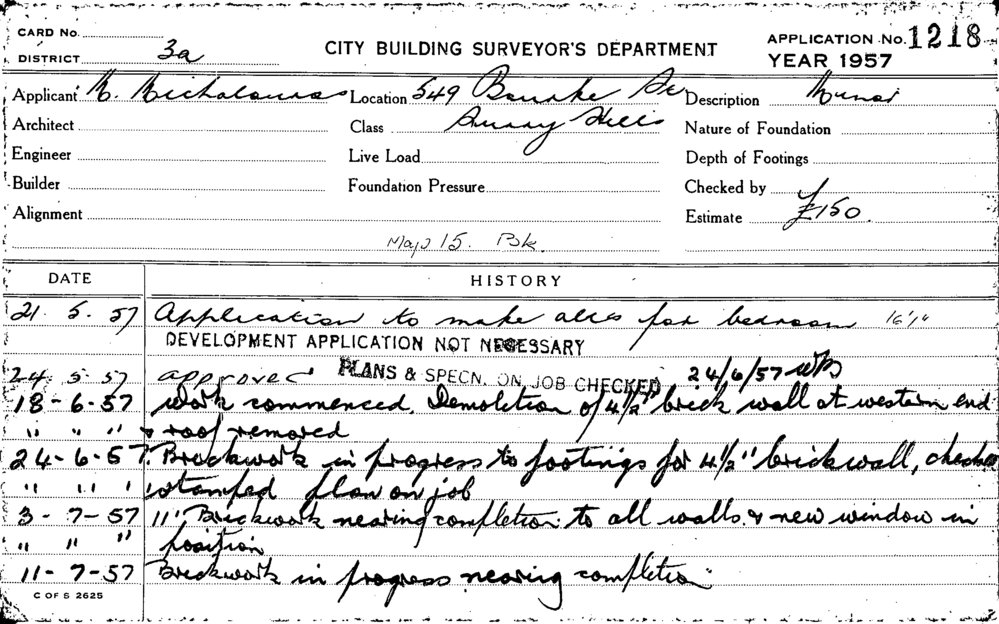 CARD No.
DISTRICT 3a
CITY BUILDING SURVEYOR'S DEPARTMENT
APPLICATION No. 1218
YEAR 1957
Applicant N. Location 549 Bourke St Description Minor
Architect Class Surry Hills Nature of Foundation
Engineer Live Load Depth of Footings
Builder Foundation Pressure Checked by
Alignment Estimate £150.
Map 15. Bk.
DATE HISTORY
21. 5. 57 Application to make alts for bedroom
DEVELOPMENT APPLICATION NOT NECESSARY
24 5 57 approved PLANS & SPECN. ON JOB CHECKED 24/6/57
18-6-57 Work commenced. Demolition of 4½" brick wall at western end
" " " & roof removed
24-6-57. Brickwork in progress to footings for 4½" brickwall, checked
" " " stamped plan on job
3-7-57 11", Brickwork nearing completion to all walls & new window in
" " " position
11-7-57 Brickwork in progress nearing completion
C OF S 2625